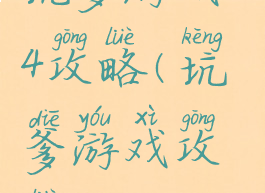 gōng lüè kēng
4攻略(坑
diē yóu xì gōng
爹游戏攻